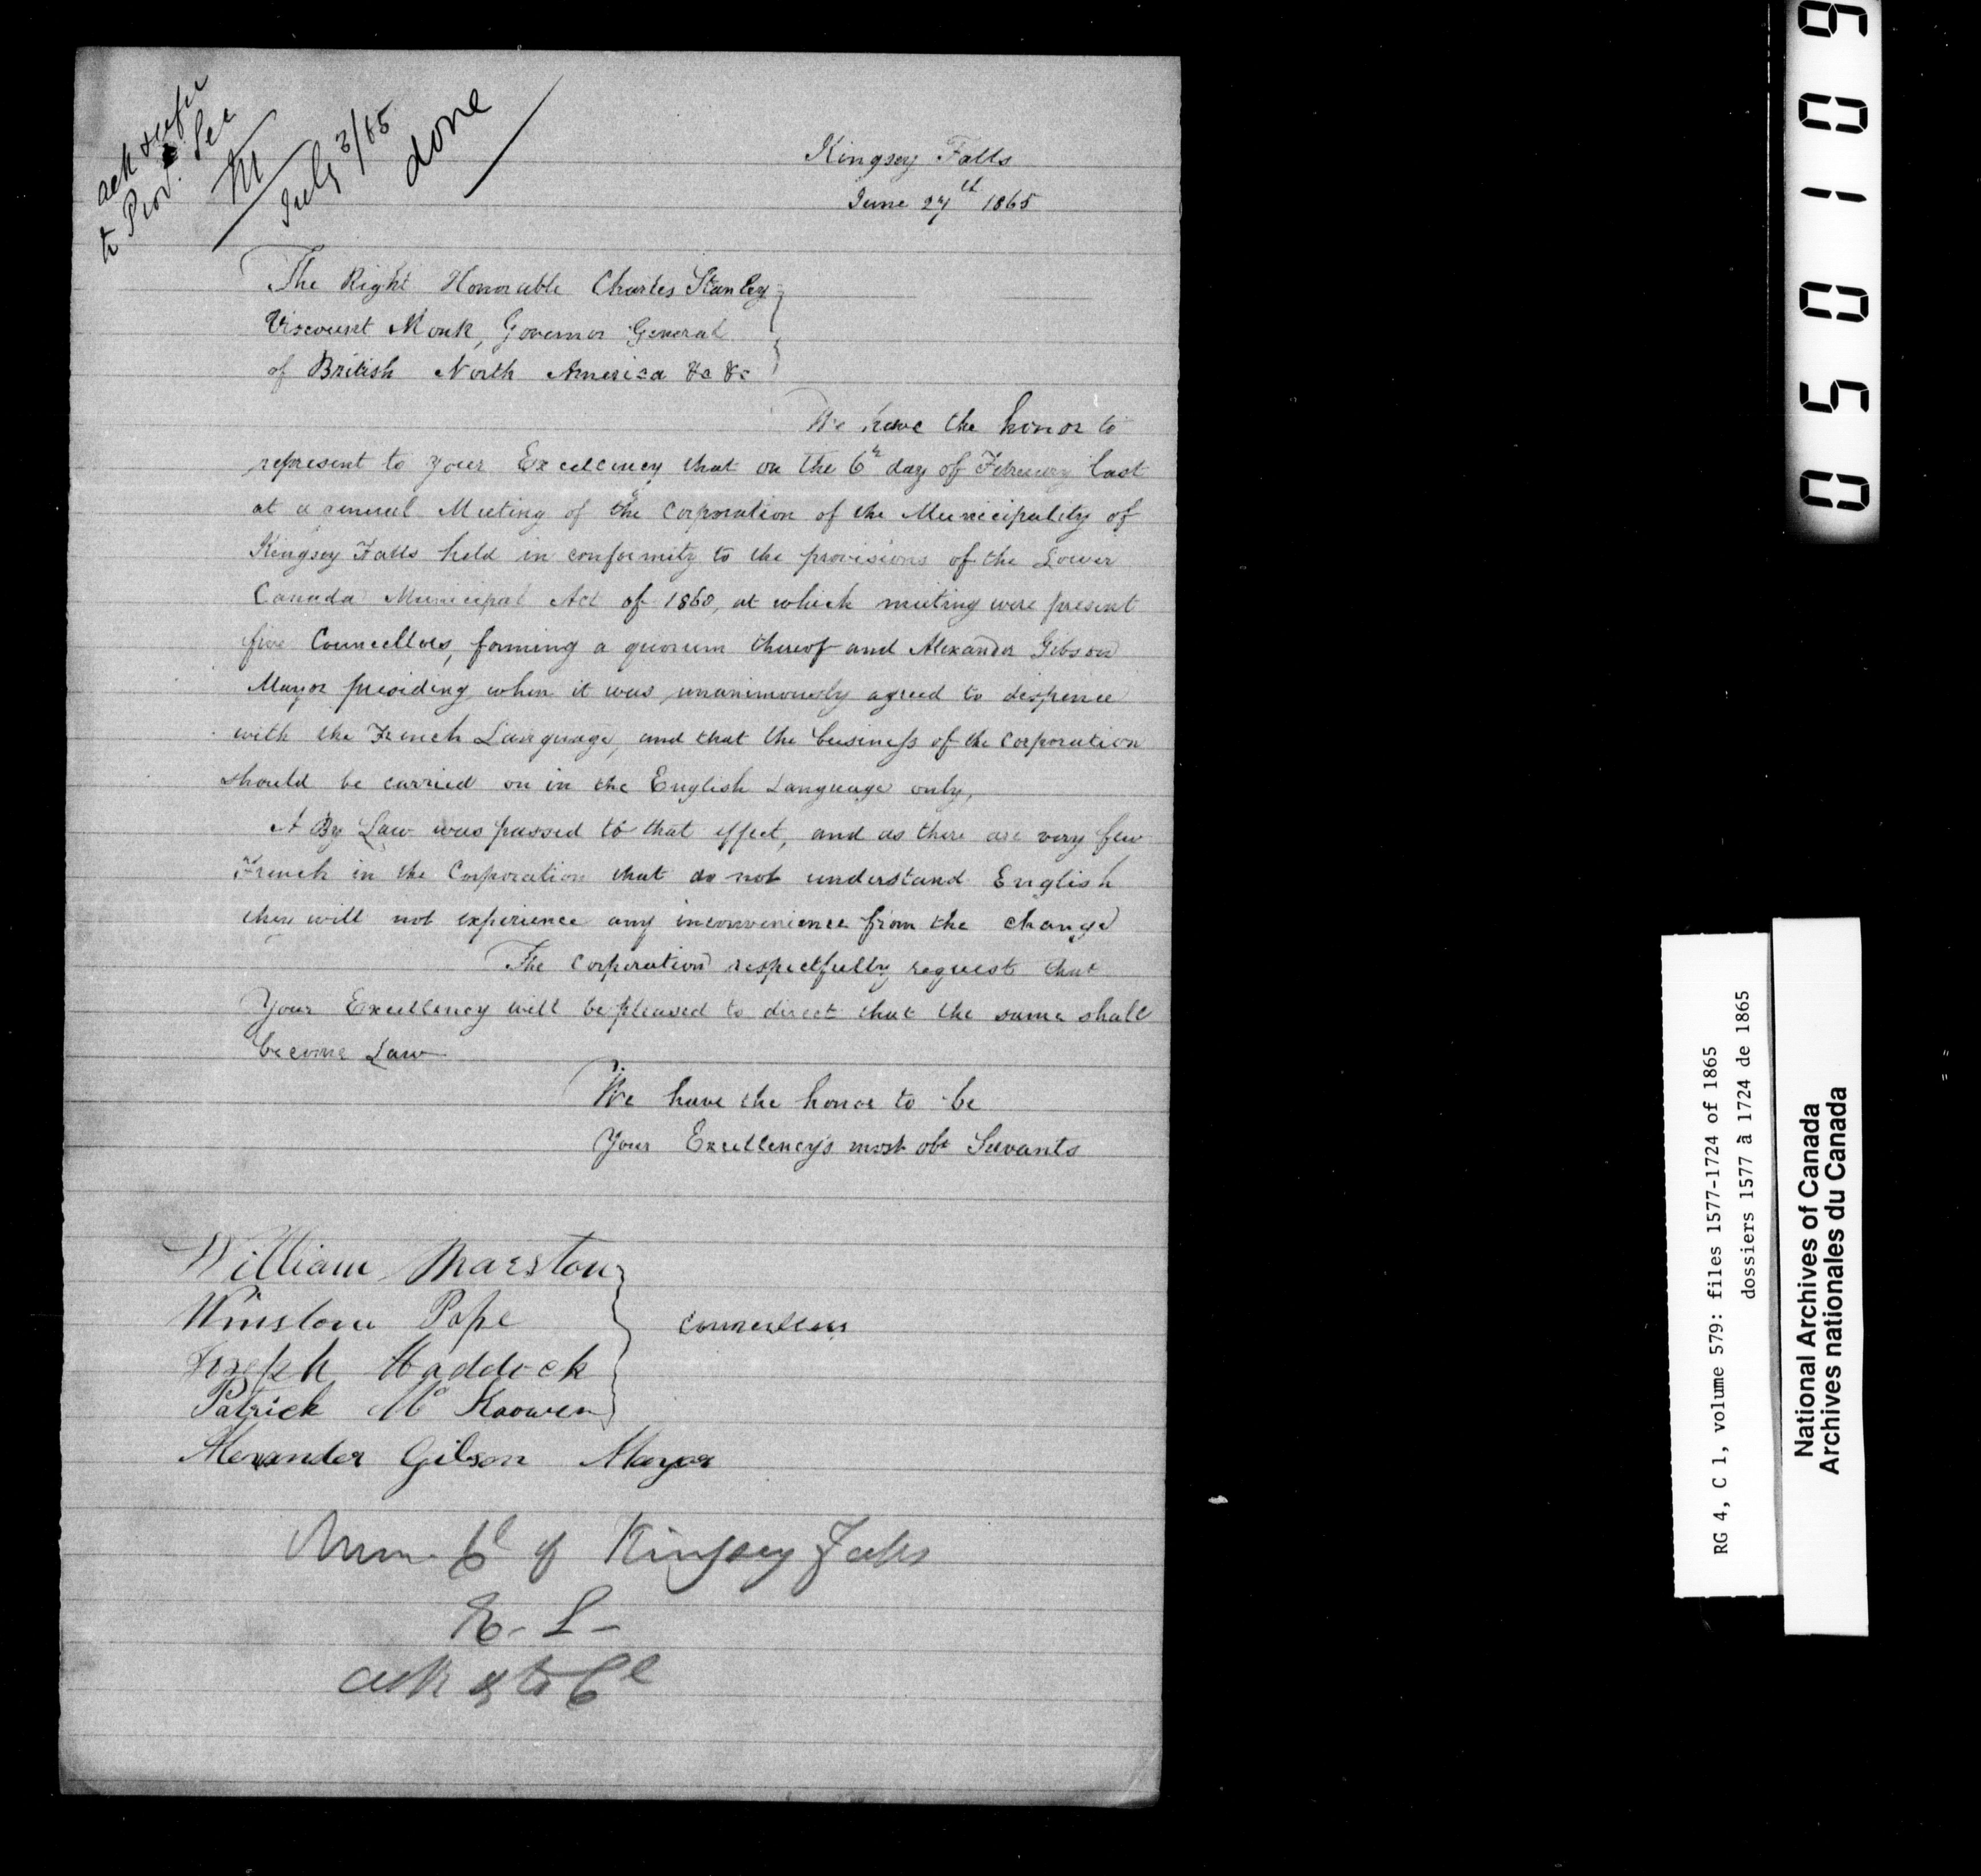 ack & refer
to Prov. Sec
M
July 3/65
done
Kingsey Falls
June 27th 1865
The Right Honorable Charles Stanley
Viscount Monk, Governor General
of British North America &c &c
We have the honor to
represent to your Excelency that on the 6th day of February last
at a general Meeting of the Corporation of the Municipality of
Kingsey Falls held in conformity to the provisions of the Lower
Canada Municipal Act of 1860, at which meeting were present
five Councellors, forming a quorum thereof and Alexander Gibson
Mayor presiding when it was unanimously agreed to dispence
with the French Language, and that the business of the Corporation
should be carried on in the English Language only,
A By Law was passed to that effect, and as there are very few
French in the Corporation that do not understand English
they will not experience any inconvenience from the change
The Corporation respectfully request that
Your Excellency will be pleased to direct that the same shall
become Law
We have the honor to be
Your Excellency's most obt Servants
William Marston
Winslow Pope
Councellors
Joseph Haddock
Patrick Mc
Alexander Gibson Mayor
Mun. Cl of Kingsey Falls
E. L
ack
RG 4, C 1, volume 579: files 1577-1724 of 1865
dossiers 1577 à 1724 de 1865
National Archives of Canada
Archives nationales du Canada